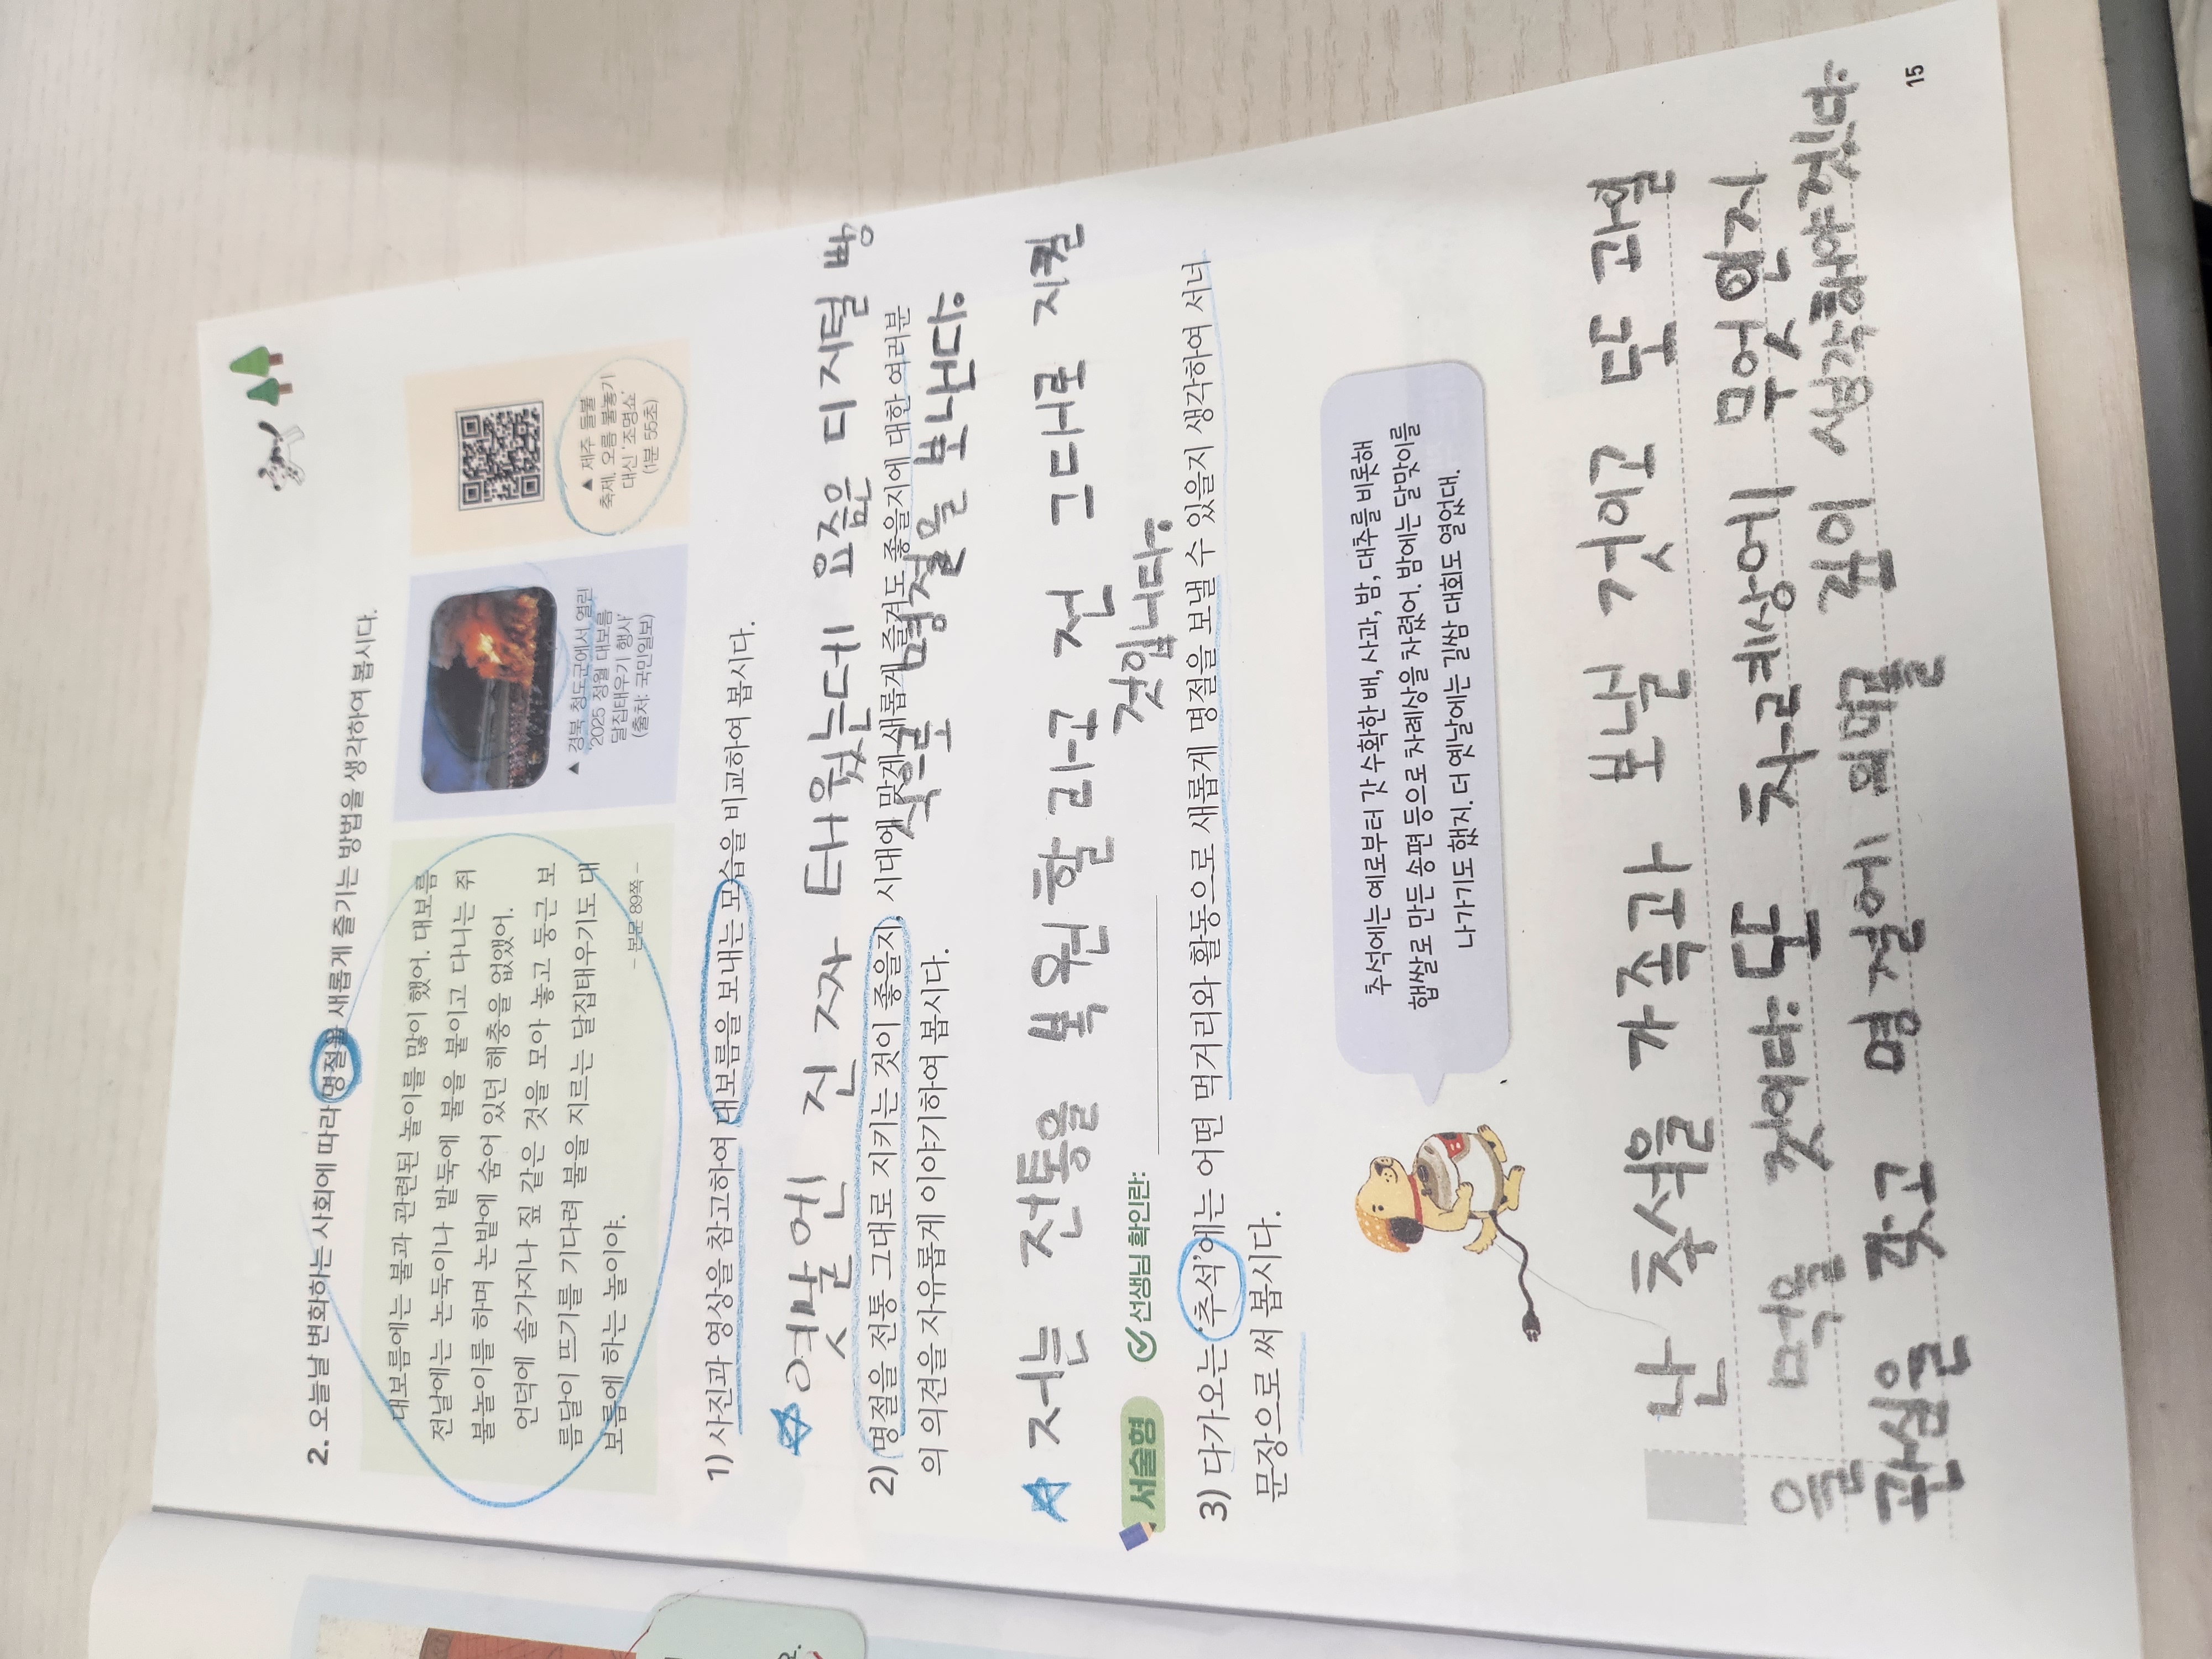 2. 오늘날 변화하는 사회에 따라 명절을 새롭게 즐기는 방법을 생각하여 봅시다.
대보름에는 불과 관련된 놀이를 많이 했어. 대보름
전날에는 논둑이나 밭둑에 불을 붙이고 다니는 쥐
불놀이를 하며 논밭에 숨어 있던 해충을 없앴어.
언덕에 솔가지나 짚 같은 것을 모아 놓고 둥근 보
름달이 뜨기를 기다려 불을 지르는 달집태우기도 대
보름에 하는 놀이야.
- 본문 89쪽 -
▲ 경북 청도군에서 열린
'2025 정월 대보름
달집태우기 행사'
(출처: 국민일보)
▲ 제주 들불
축제, 오름 불놓기
대신 '조명쇼'
(1분 55초)
1) 사진과 영상을 참고하여 대보름을 보내는 모습을 비교하여 봅시다.
옛날엔 진짜 태웠는데 요즘은 디지털 방
식으로 명절을 보낸다.
2) 명절을 전통 그대로 지키는 것이 좋을지, 시대에 맞게 새롭게 즐겨도 좋을지에 대한 여러분
의 의견을 자유롭게 이야기하여 봅시다.
저는 전통을 복원할라고 전 그대로 지킬
것입니다.
서술형
선생님 확인란:
3) 다가오는 '추석'에는 어떤 먹거리와 활동으로 새롭게 명절을 보낼 수 있을지 생각하여 서너
문장으로 써 봅시다.
추석에는 예로부터 갓 수확한 배, 사과, 밤, 대추를 비롯해
햅쌀로 만든 송편 등으로 차례상을 차렸어. 밤에는 달맞이를
나가기도 했지. 더 옛날에는 길쌈 대회도 열었대.
난 추석을 가족과 보낼 거이고 또 과일
을 먹을 것이다. 또 차례상에 무엇인지
관심을 갖고 명절에 의미를 깊이 생각해야겠다.
15